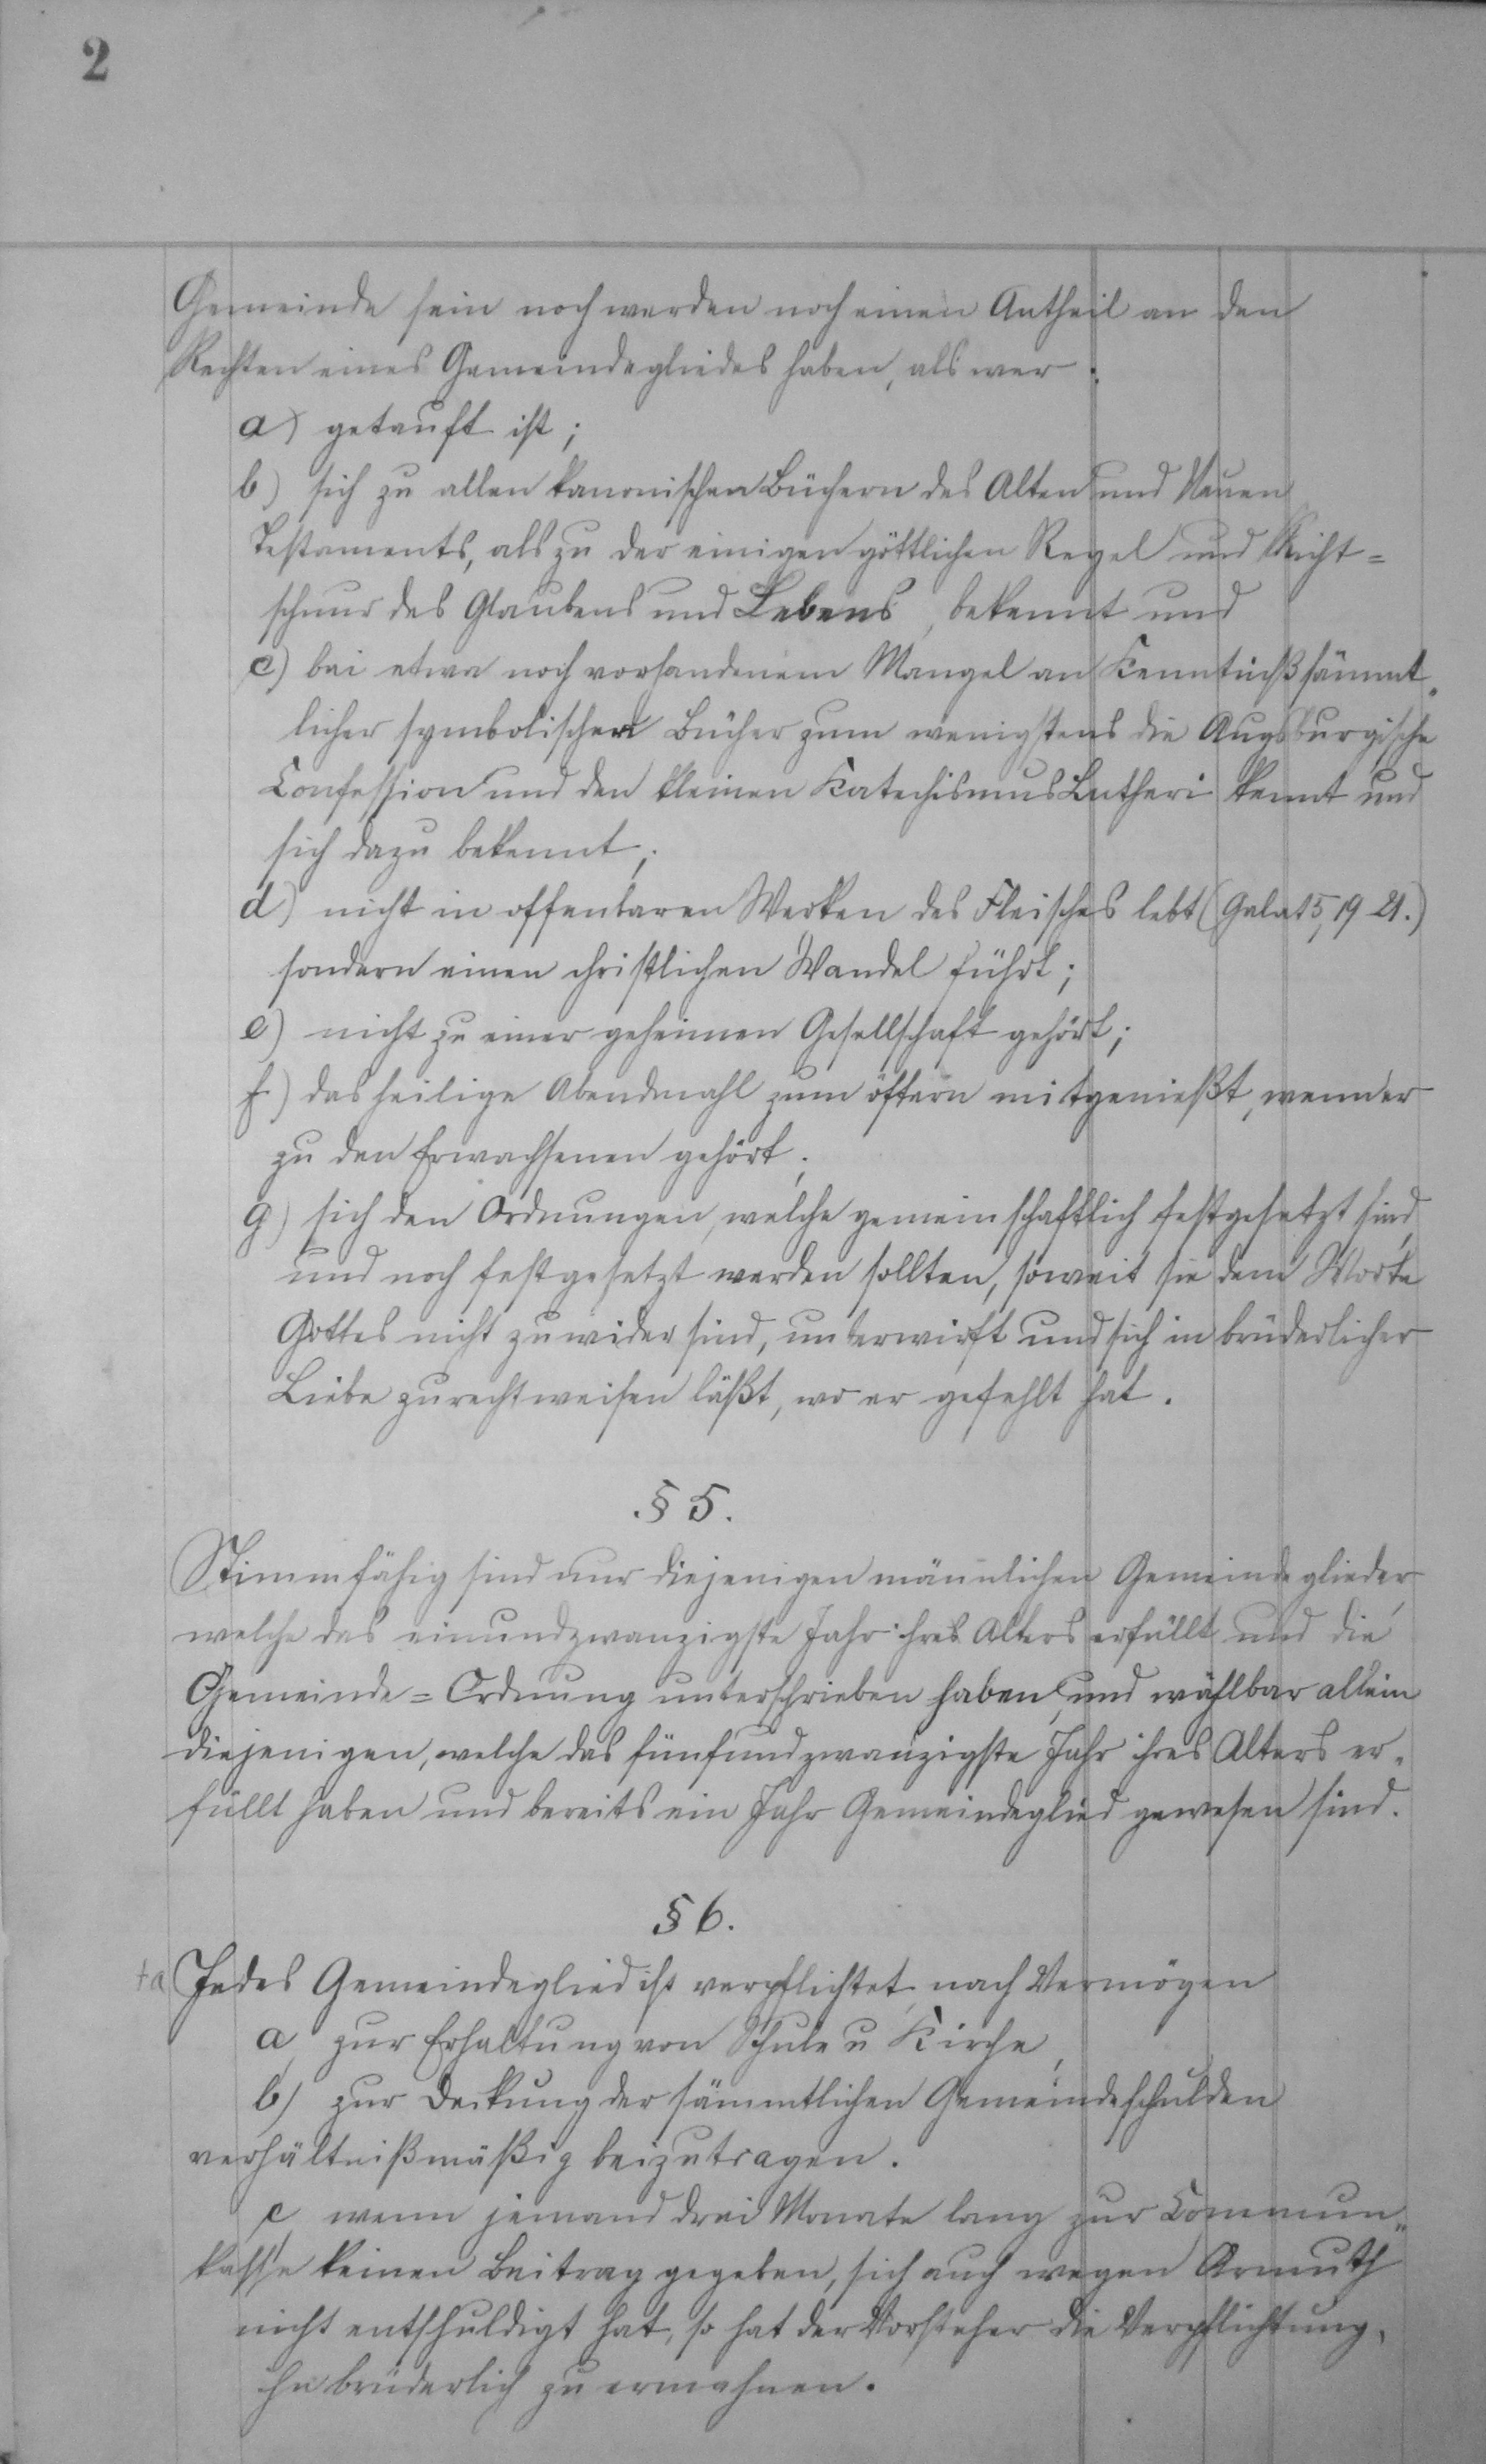 2
Gemeinde sein noch werden noch einen Antheil an den
Rechten eines Gemeindegliedes haben, als wer:
a) getauft ist;
b) sich zu allen kanonischen Büchern des Alten und Neuen
Testaments, als zu der einigen göttlichen Regel und Richt=
schnur des Glaubens und Lebens, bekennt und
c) bei etwa noch vorhandenem Mangel an Kenntniß sämmt-
licher symbolischen Bücher zum wenigstens die Augsburgische
Confession und den kleinen Katechismus Lutheri kennt und
sich dazu bekennt;
d) nicht in offenbaren Werken des Fleisches lebt (Galat 5, 19 21.)
sondern einen christlichen Wandel führt;
e) nicht zu einer geheimen Gesellschaft gehört;
f) das heilige Abendmahl zum öftern mitgenießt, wenn er
zu den Erwachsenen gehört;
g) sich den Ordnungen, welche gemeinschaftlich festgesetzt sind,
und noch festgesetzt werden sollten, soweit sie dem Worte
Gottes nicht zuwider sind, unterwirft und sich in brüderlicher
Liebe zurechtweisen läßt, wo er gefehlt hat.
§ 5.
Stimmfähig sind nur diejenigen männlichen Gemeindeglieder,
welche das einundzwanzigste Jahr ihres Alters erfüllt und die
Gemeinde=Ordnung unterschrieben haben, und wählbar allein
diejenigen, welche das fünfundzwanzigste Jahr ihres Alters er-
füllt haben und bereits ein Jahr Gemeindeglied gewesen sind.
§ 6.
+a Jedes Gemeindeglied ist verpflichtet, nach Vermögen
a, zur Erhaltung von Schule u Kirche,
b) zur Deckung der sämmtlichen Gemeindeschulden
verhältnißmäßig beizutragen.
c, wenn jemand drei Monate lang zur Commun-
kasse keinen Beitrag gegeben, sich auch wegen Armuth
nicht entschuldigt hat, so hat der Vorsteher die Verpflichtung,
ihn brüderlich zu ermahnen.